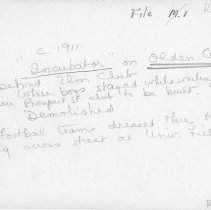 File M.1 R
"c. 1911
"Incubator" on Olden
behind Elm Club
where boys stayed while waiting
Prospect St. club to be built.
Demolished
Football teams dressed there
across street at Univ. Field
R